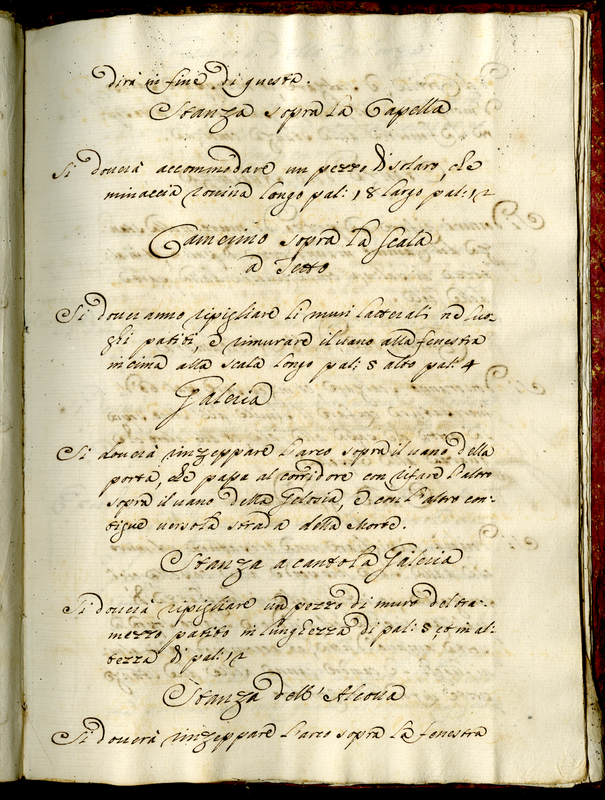 dirà in fine di questa.
Stanza sopra la Capella
Si douerà accommodare un pezzo di solaro, che
minaccia rouina longo pal: 18 largo pal: 12
Camerino sopra la scala
a Tetto
Si doueranno ripigliare li muri latterali ne luo-
ghi patiti, e rimurare il uano alla fenestra
in cima alla scala longo pal: 8 alto pal: 4
Galeria
Si douerà inzeppare l'arco sopra il uano della
porta, che passa al corridore con rifare l'altro
sopra il uano della Gelosia, e con l'altro con-
tiguo uerso la strada della Morte.
Stanza a canto la Galeria
Si douerà ripigliare un pezzo di muro del tra-
mezzo patito in lunghezza di pal: 8, et in al-
tezza di pal: 12
Stanza dell'Alcoua
Si douerà inzeppare l'arco sopra la fenestra